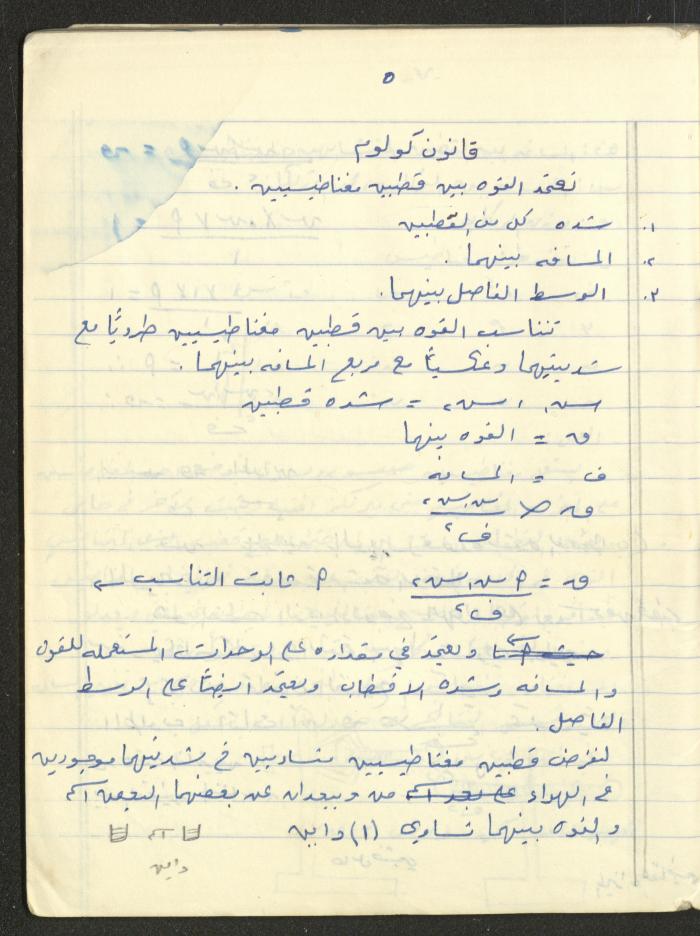 ٥
قانون كولوم
تعتمد القوه بين قطبين مغناطيسيين .
١. شده كل من القطبين
٢. المسافه بينهما .
٣. الوسط الفاصل بينهما .
تتناسب القوه بين قطبين مغناطيسيين طرديًا مع
شدتيهما وعكسيًا مع مربع المسافه بينهما .
س١ ، س٢ = شده قطبين
ق = القوه بينهما
ف = المسافه
ق ∝ س١ س٢ / ف٢
ق = م س١ س٢ / ف٢ م ثابت التناسب
ويعتمد في مقداره على الوحدات المستعمله للقوه
والمسافه وشده الاقطاب ويعتمد ايضًا على الوسط
الفاصل .
لنفرض قطبين مغناطيسيين متساويين في شدتيهما موجودين
في الهواء ويبعدان عن بعضهما البعض ١سم
والقوه بينهما تساوي (١) داين
١سم
داين